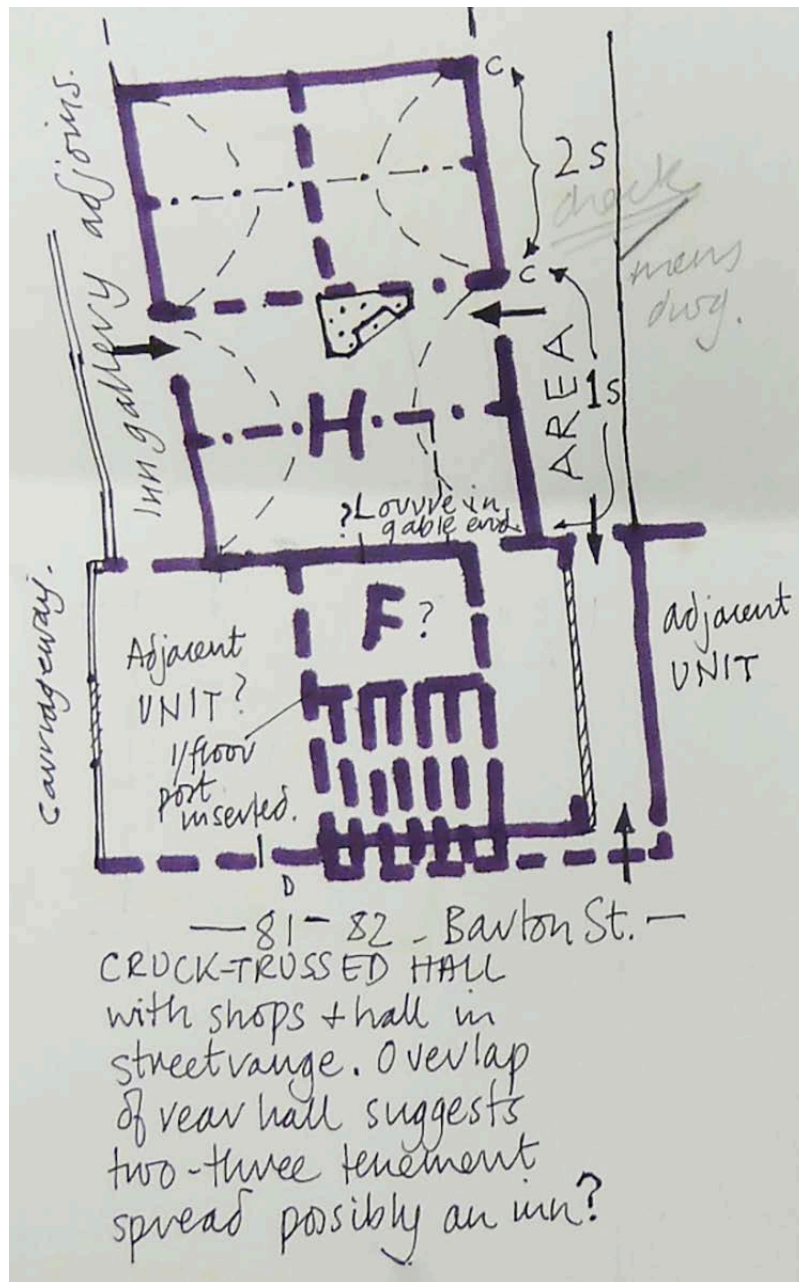 Inn gallery adjoins.
C
2s
check
mens
dwg.
C
AREA
1s
H
?Louvre in
gable end.
carriageway.
F?
Adjacent
UNIT?
1/floor
post
inserted.
adjacent
UNIT
D
— 81 – 82 – Barton St. —
CRUCK-TRUSSED HALL
with shops + hall in
street range. Overlap
of rear hall suggests
two-three tenement
spread possibly an inn?